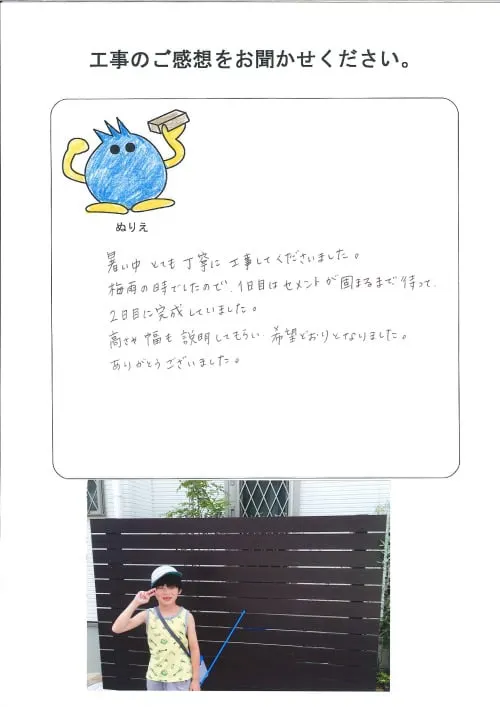 工事のご感想をお聞かせください。
ぬりえ
暑い中 とても丁寧に工事してくださいました。
梅雨の時でしたので、1日目はセメントが固まるまで待って、
2日目に完成していました。
高さや幅も説明してもらい、希望どおりとなりました。
ありがとうございました。